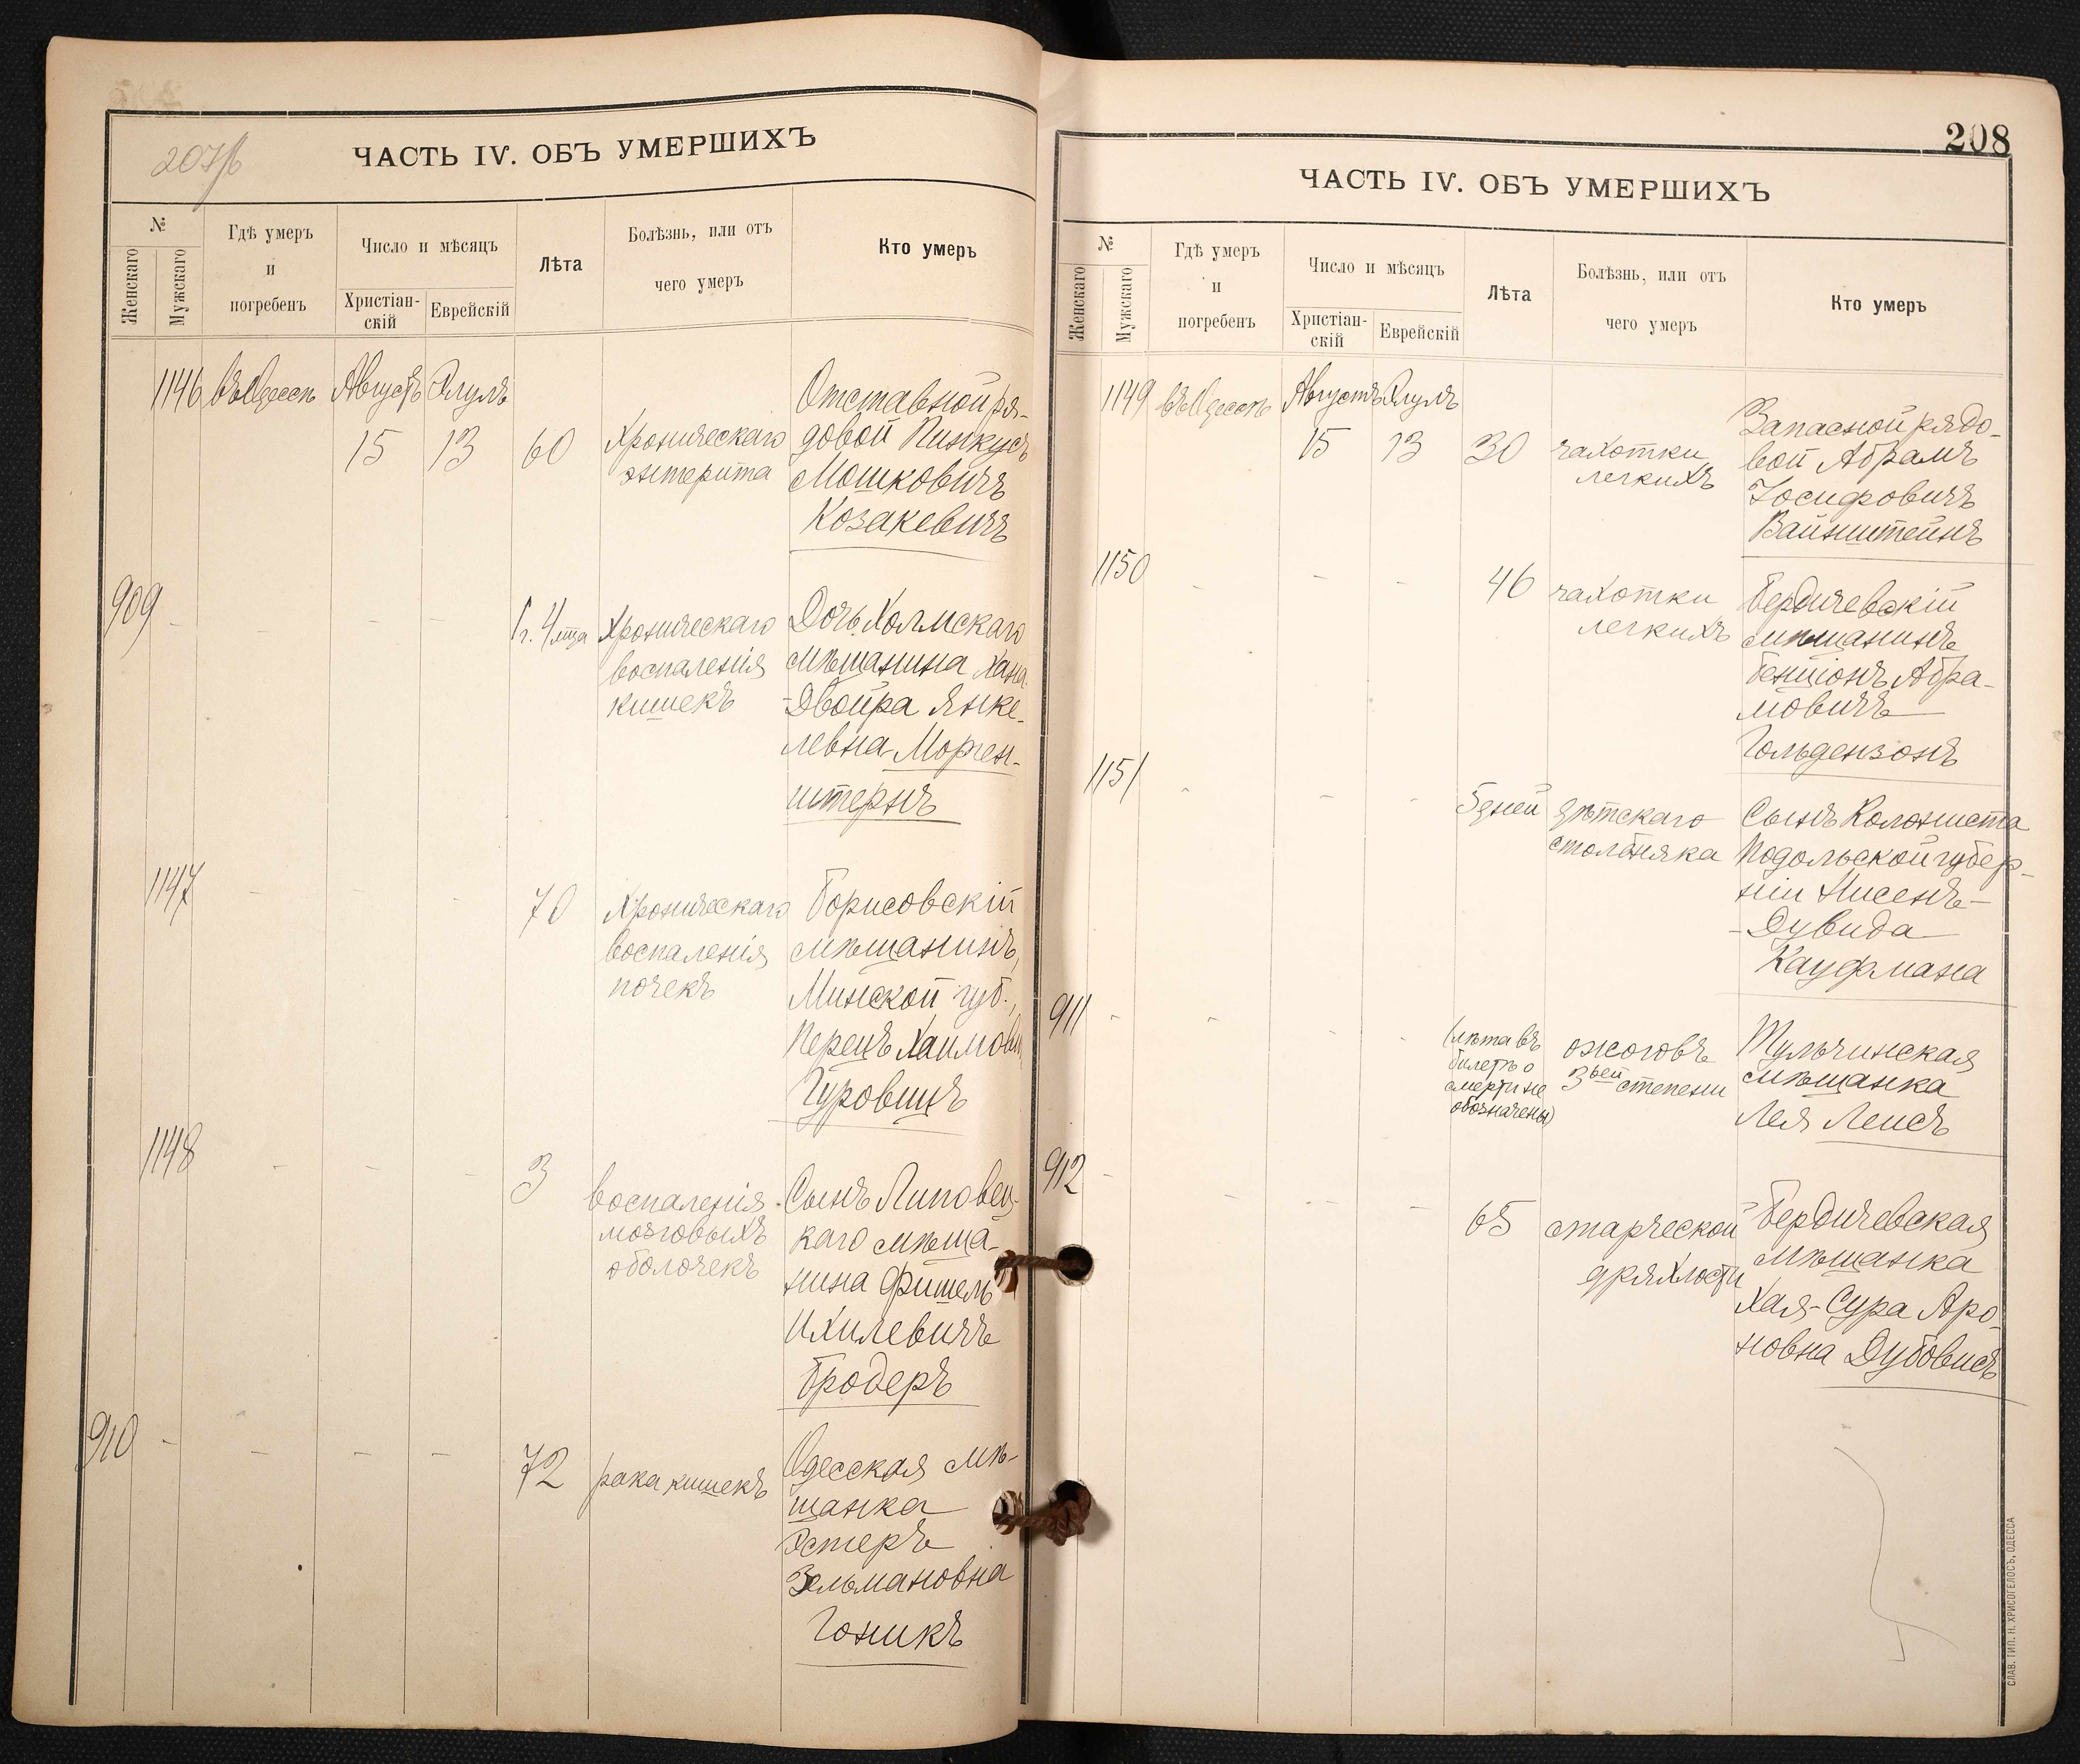 207/б
ЧАСТЬ IV. ОБЪ УМЕРШИХЪ
№
Женскаго
Мужскаго
Гдѣ умеръ
и
погребенъ
Число и мѣсяцъ
Христіан-
скій
Еврейскій
Лѣта
Болѣзнь, или отъ
чего умеръ
Кто умеръ
1146 въ Одессѣ Августъ Элулъ
15 13 60
Хроническаго
энтерита
Отставной ря-
довой Пинкусъ
Мошковичъ
Козакевичъ
909 - - - -
1 г. 4 мца
Хроническаго
воспаленія
кишекъ
Дочь Холмскаго
мѣщанина Хана
-Двойра Янке-
левна Морген-
штернъ
1147 - - -
70
Хроническаго
воспаленія
почекъ
Борисовскій
мѣщанинъ,
Минской губ.,
Перецъ Хаимович
Гуровицъ
1148 - - -
3
воспаленія
мозговыхъ
оболочекъ
Сынъ Липовец-
каго мѣща-
нина Фишель
Ихилевичъ
Бродеръ
910 - - - -
72
рака кишекъ
Одесская мѣ-
щанка
Эстеръ
Зельмановна
Гоникъ
208
ЧАСТЬ IV. ОБЪ УМЕРШИХЪ
№
Женскаго
Мужскаго
Гдѣ умеръ
и
погребенъ
Число и мѣсяцъ
Христіан-
скій
Еврейскій
Лѣта
Болѣзнь, или отъ
чего умеръ
Кто умеръ
1149 въ Одессѣ Августъ Элулъ
15 13 30
чахотки
легкихъ
Запасной рядо-
вой Абрамъ
Іосифовичъ
Вайнштейнъ
1150 - - -
46
чахотки
легкихъ
Бердичевскій
мѣщанинъ
Бенціонъ Абра-
мовичъ
Гольдензонъ
1151 - - -
5 дней
дѣтскаго
столбняка
Сынъ Колониста
Подольской губер-
ніи Нисенъ-
-Дувида
Кауфмана
911 - - - -
(лѣта въ
билетѣ о
смерти не
обозначены)
ожоговъ
3ьей степени
Тульчинская
мѣщанка
Лея Леисъ
912 - - - -
65
старческой
дряхлости
Бердичевская
мѣщанка
Хая-Сура Аро-
новна Дубовисъ
СЛАВ. ТИП. Н. ХРИСОГЕЛОСЪ, ОДЕССА